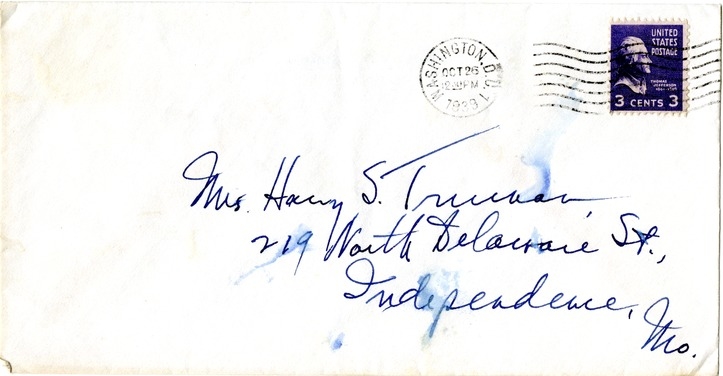 WASHINGTON, D.C.
OCT 26
PM
1939
UNITED
STATES
POSTAGE
THOMAS
JEFFERSON
3 CENTS 3
Mrs. Harry S. Truman,
219 North Delaware St.,
Independence,
Mo.